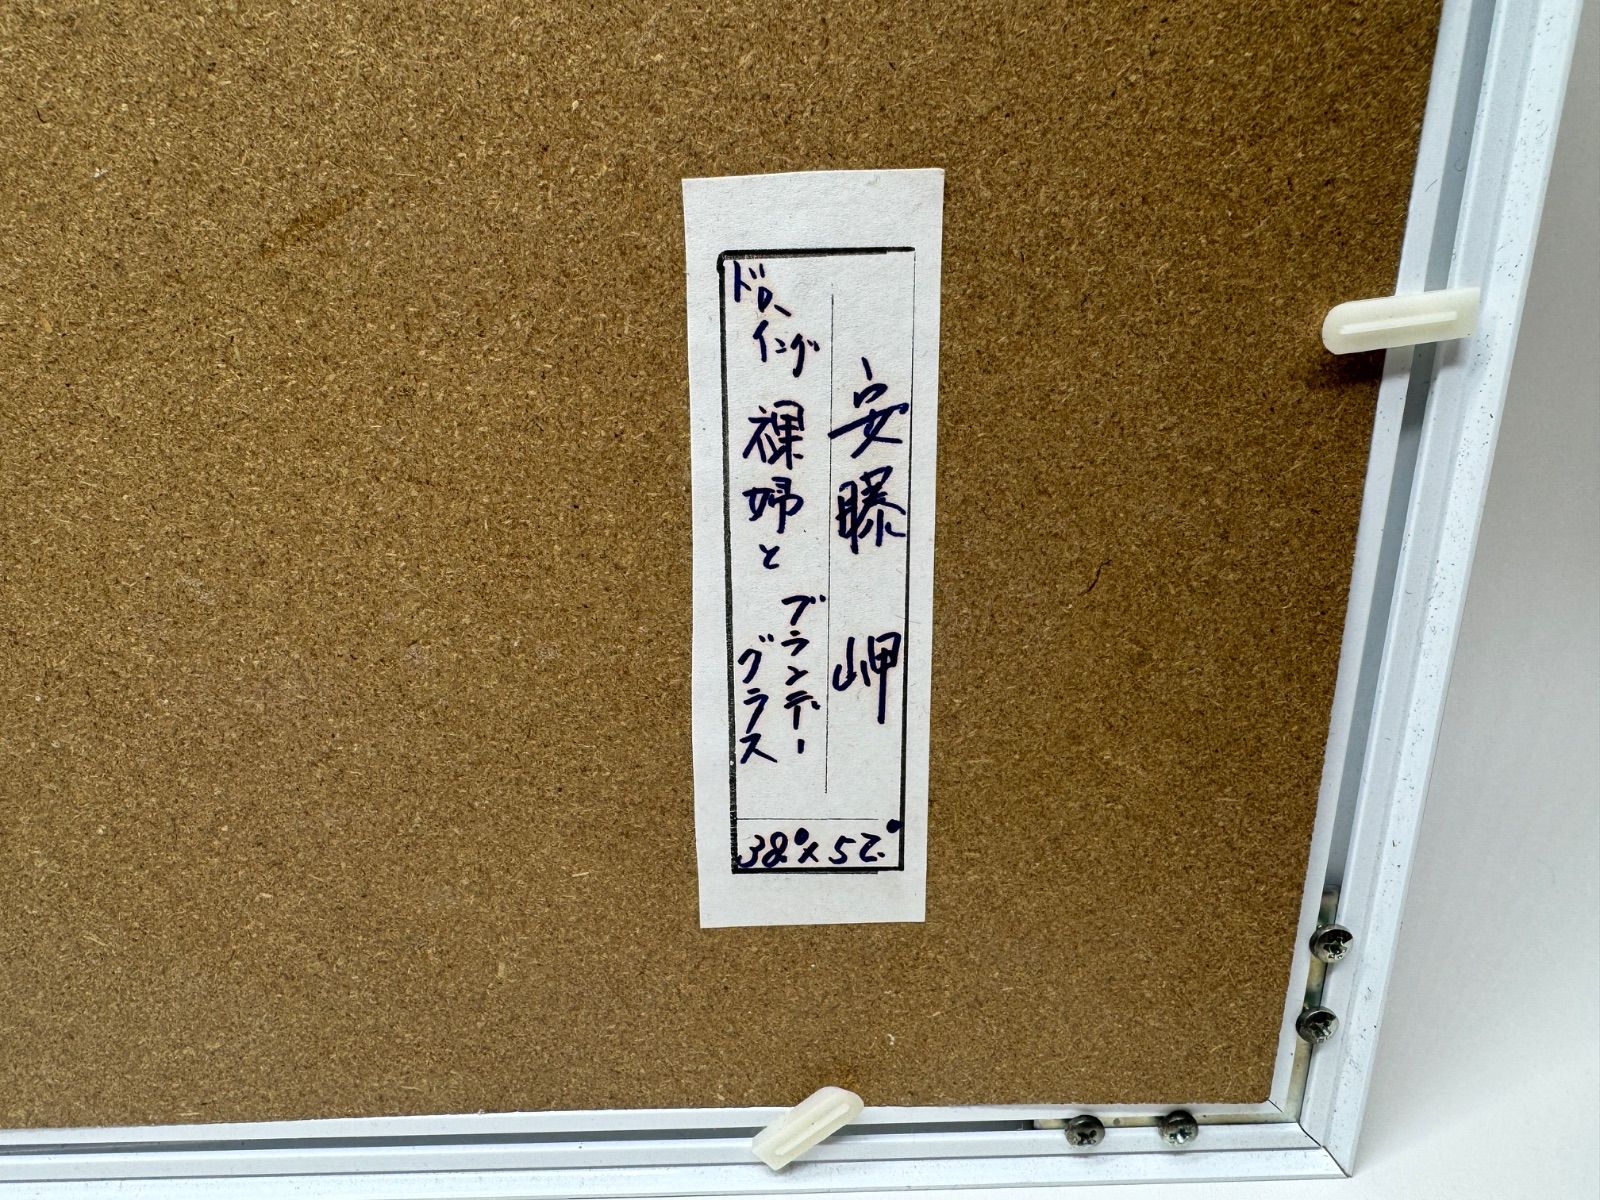 安藤 岬
ドローイング 裸婦と ブランデーグラス
38.0×52.0